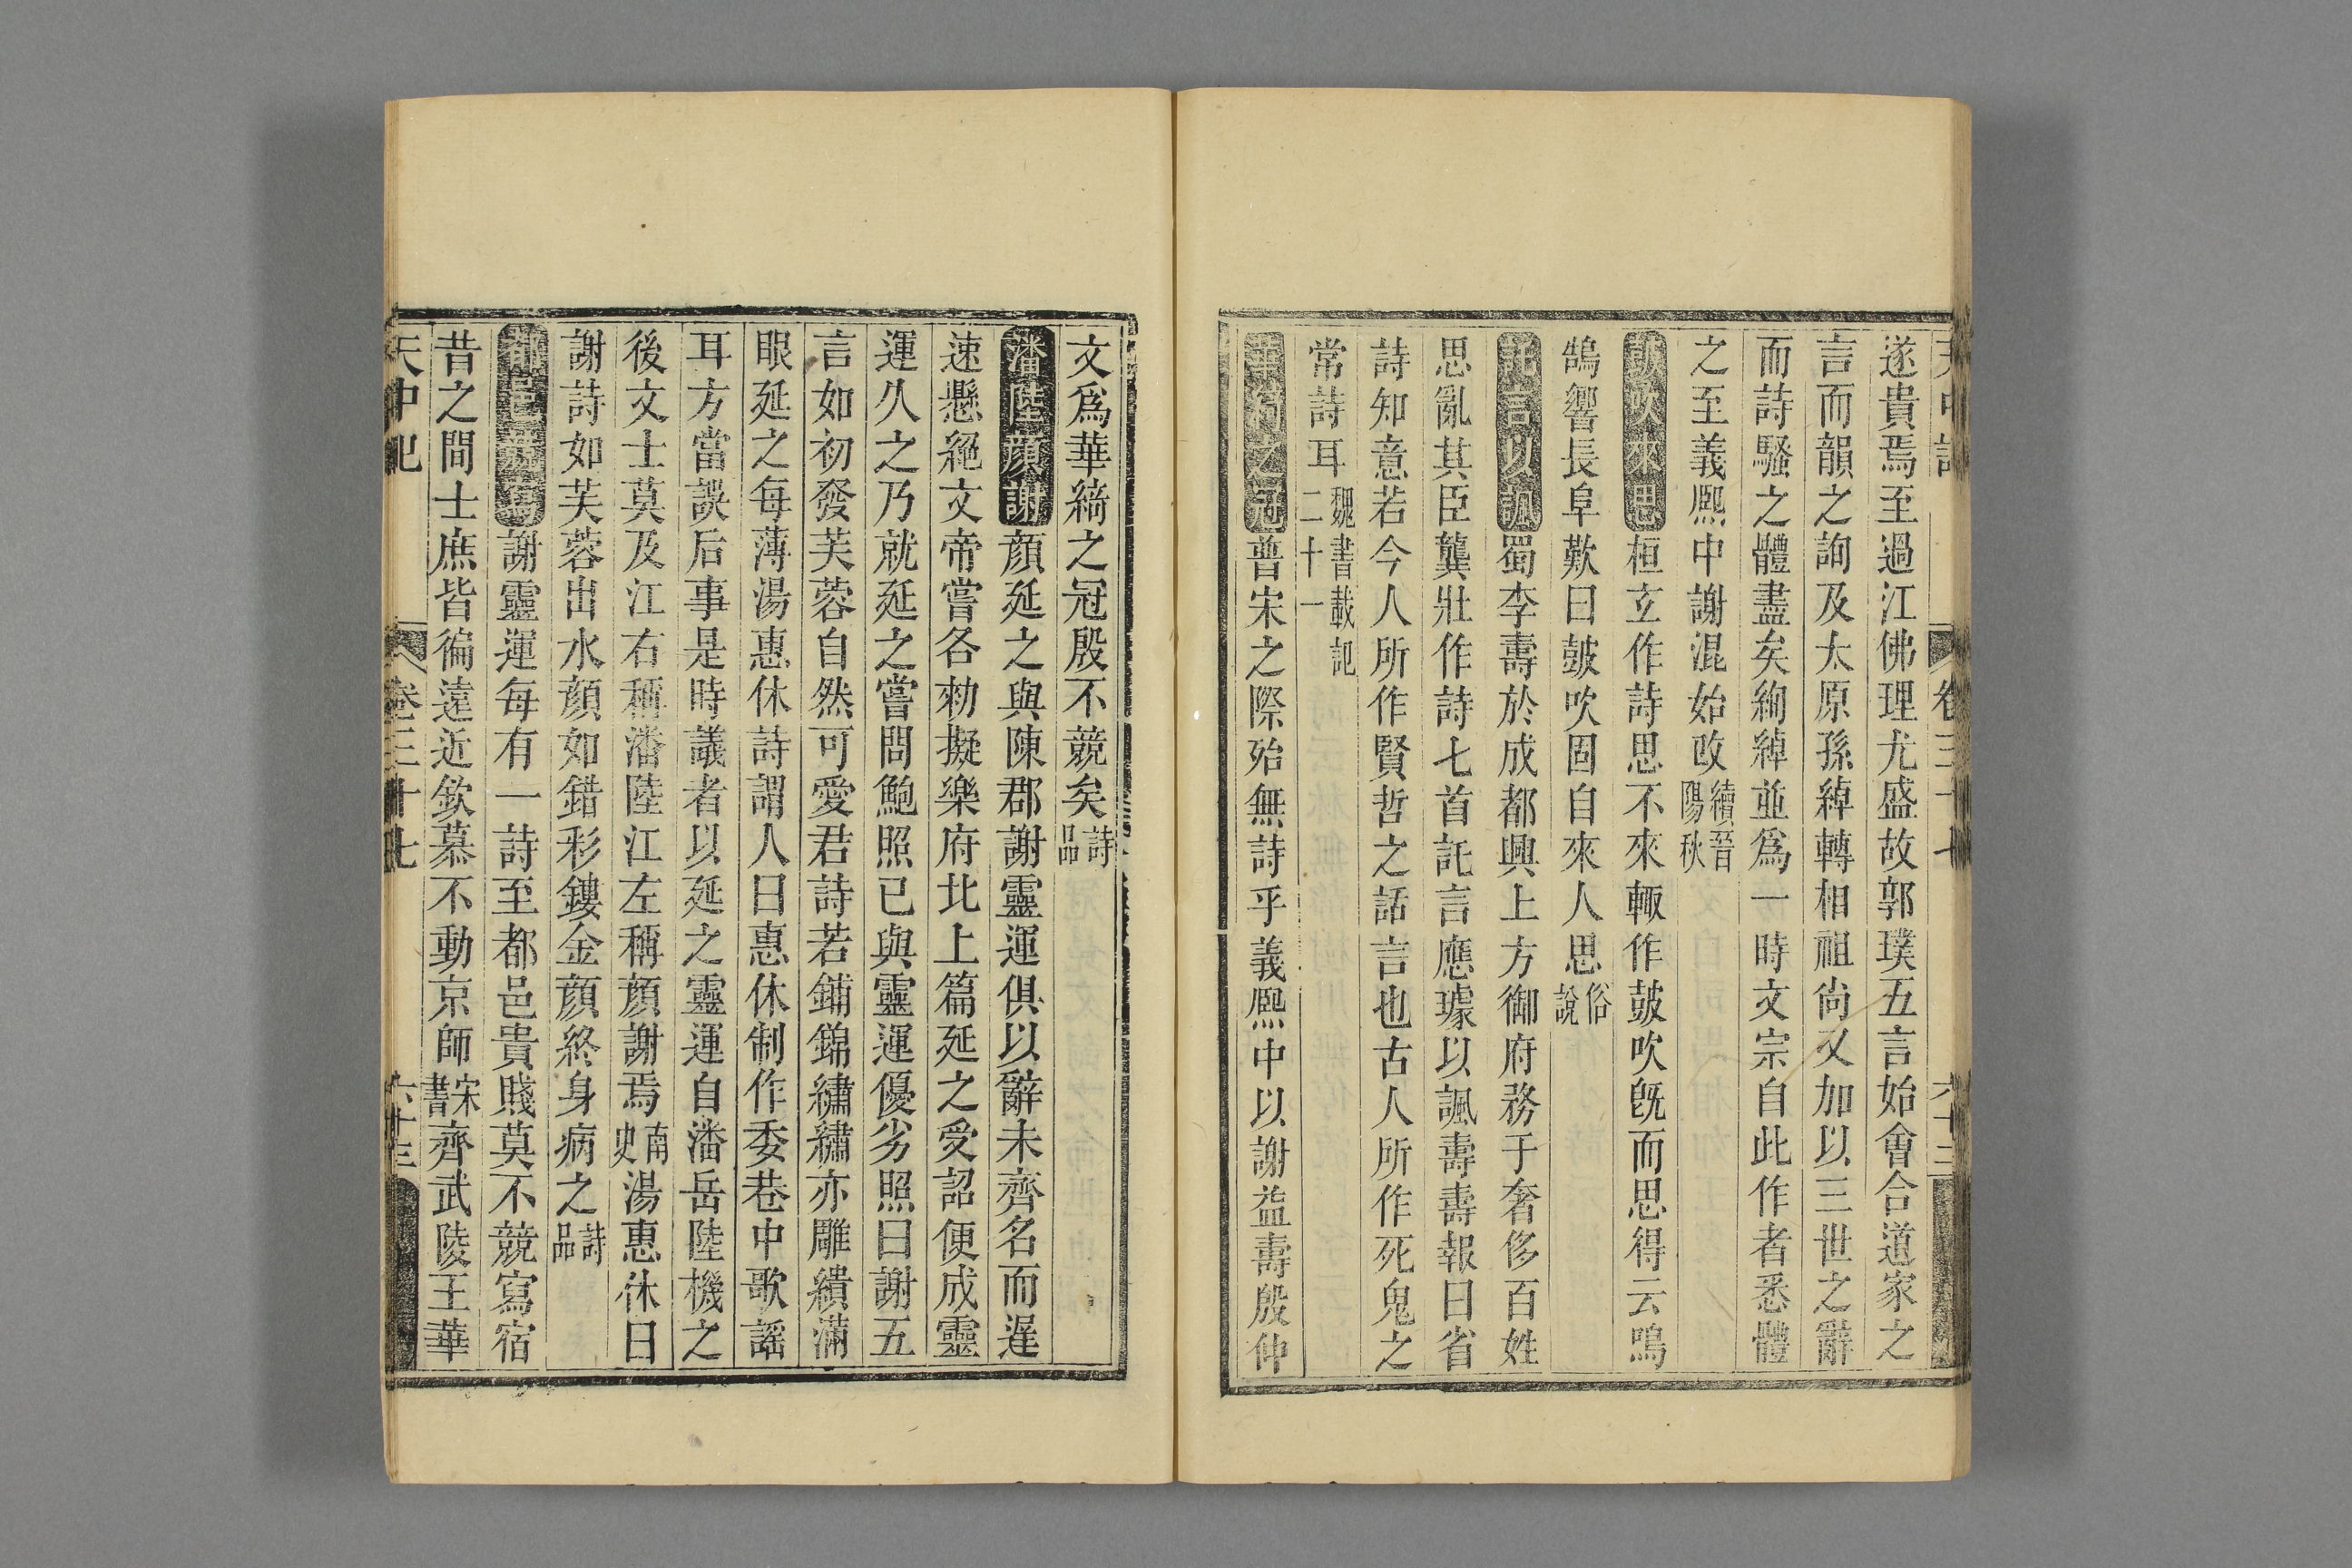 遂貴焉至過江佛理尤盛故郭璞五言始會合道家之
言而韻之詢及太原孫綽轉相祖尚又加以三世之辭
而詩騷之體盡矣絢綽並爲一時文宗自此作者悉體
之至義熙中謝混始改續晉陽秋
鼓吹來思桓玄作詩思不來輙作鼓吹旣而思得云鳴
鵠響長阜歎曰鼓吹固自來人思俗說
託言以諷蜀李壽於成都興上方御府務于奢侈百姓
思亂其臣龔壯作詩七首託言應璩以諷壽壽報曰省
詩知意若今人所作賢哲之話言也古人所作死鬼之
常詩耳魏書載記二十一
華綺之冠晉宋之際殆無詩乎義熙中以謝益壽殷仲
文爲華綺之冠殷不競矣詩品
潘陸顔謝顔延之與陳郡謝靈運俱以辭未齊名而遲
速懸絕文帝嘗各勑擬樂府北上篇延之受詔便成靈
運久之乃就延之嘗問鮑照已與靈運優劣照曰謝五
言如初發芙蓉自然可愛君詩若鋪錦繡繡亦雕繢滿
眼延之每薄湯惠休詩謂人曰惠休制作委巷中歌謠
耳方當誤后事是時議者以延之靈運自潘岳陸機之
後文士莫及江右稱潘陸江左稱顔謝焉南史湯惠休曰
謝詩如芙蓉出水顔如錯彩鏤金顔終身病之詩品
都邑競寫謝靈運每有一詩至都邑貴賤莫不競寫宿
昔之間士庶皆徧遠近欽慕不動京師宋書齊武陵王華
天中記 卷三十七 六十三